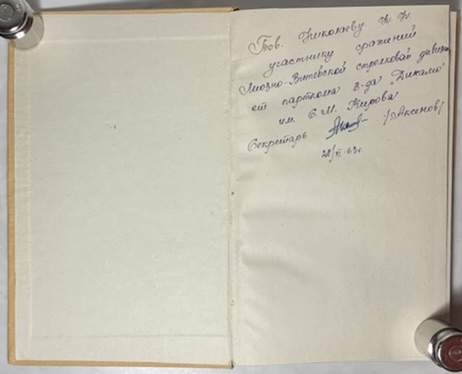 Тов. Николаеву Н. Н.
участнику сражений
Лиозно-Витебской стрелковой дивизии
от парткома з-да "Динамо"
им. С. М. Кирова
Секретарь /Аксенов/
28/ 63г.